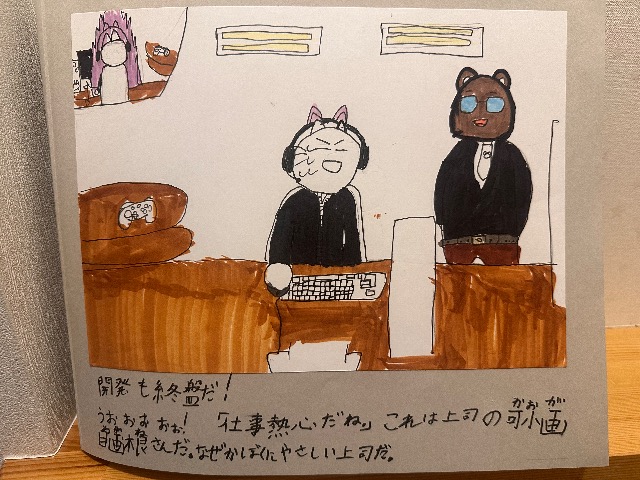 開発も終盤だ!
うおおおおお!「仕事熱心だね。」これは上司の
かおが
根さんだ。なぜかぼくにやさしい上司だ。